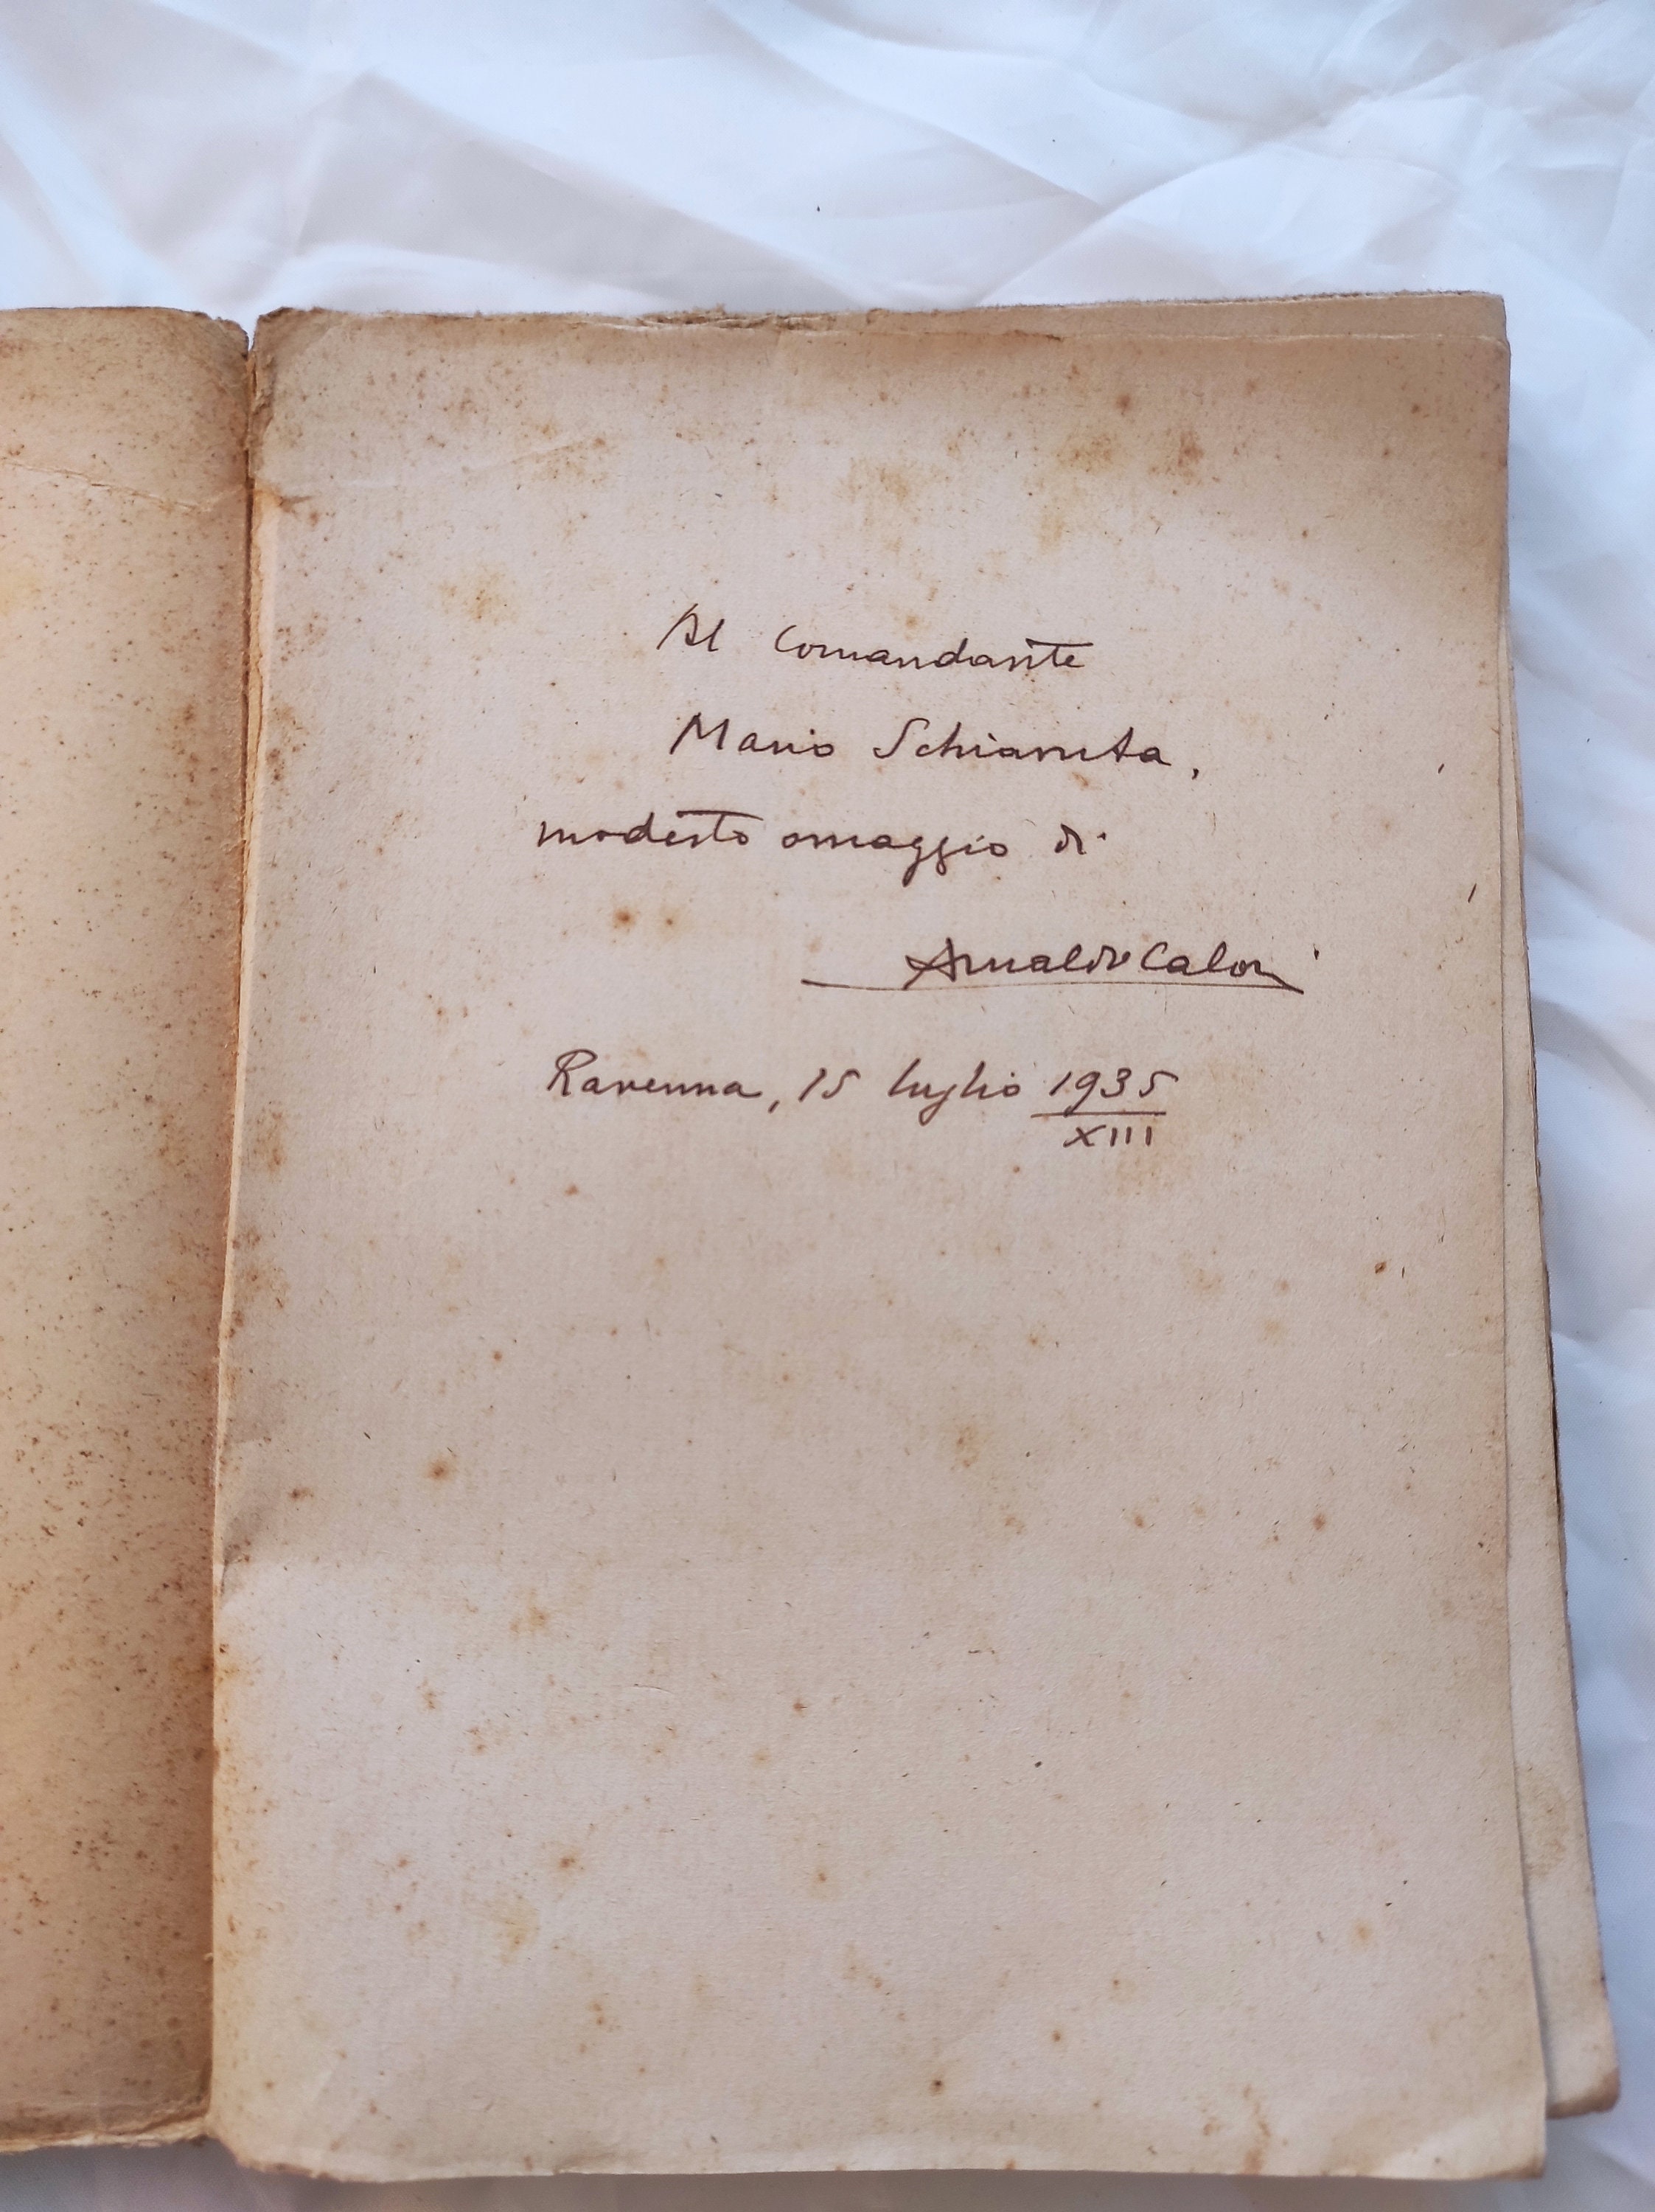 Al Comandante
Mario Schiavuta,
modesto omaggio di
Arnaldo Calori
Ravenna, 15 luglio 1935
XIII